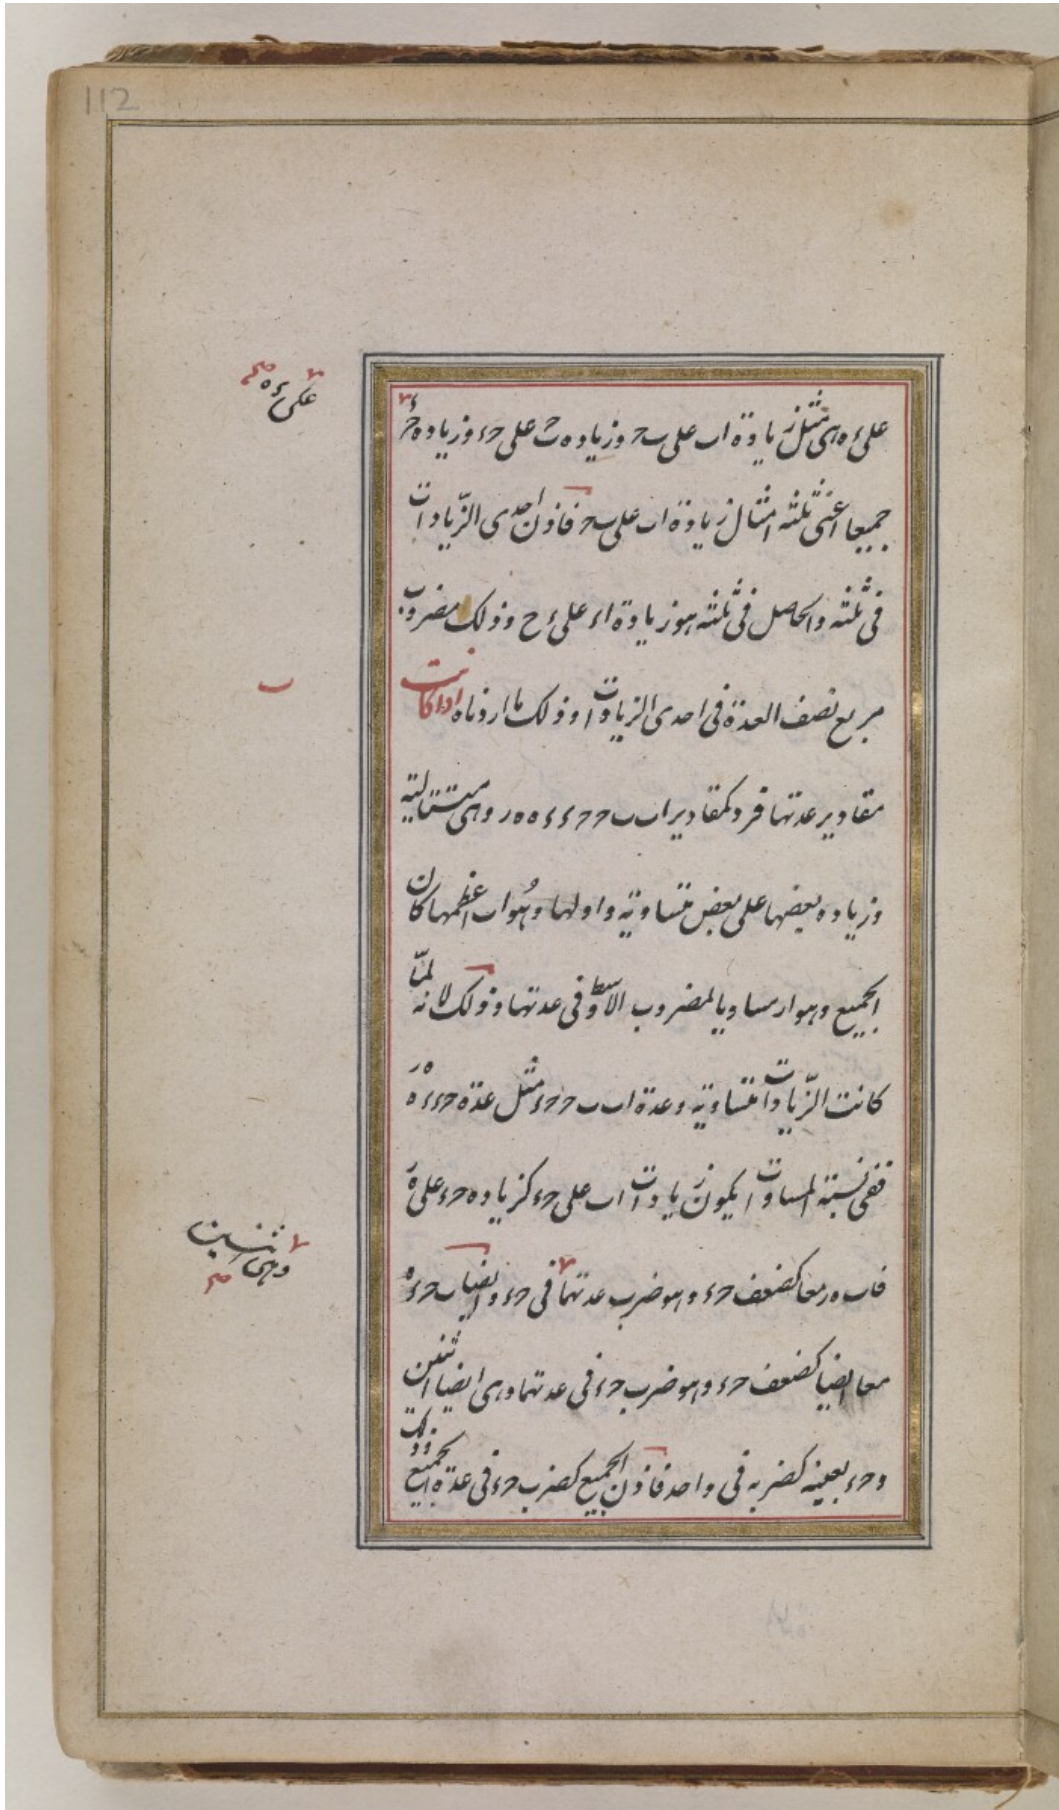 112
على ء ه هى مثل زيادة اب على ب ح وزياده ب ح على ح ء وزياده ح ء
على ء ه صح
جميعا اعنى ثلثة امثال زيادة اب على ب ح فاذن احدى الزّيادات
فى ثلثة والحاصل فى ثلثة هو زيادة اء على ء ح وذلك مضروب
مربع نصف العدة فى احدى الزيادات وذلك ما اردناه اذا كانت
ب
مقادير عدتها فرد كمقادير اب ب ح ح ء ء ه ه ر وهى متتالية
وزياده بعضها على بعض متساوية واولها وهو اب اعظمها كان
الجميع وهو ار مساويا لمضروب الاوسط فى عدتها وذلك لانه لمّا
كانت الزّيادات متساوية وعدة اب ب ح ح ء مثل عدة ح ء ء ه ه ر
ففى نسبة المساوات يكون زيادات اب على ح ء كزياده ح ء على ه ر
فاب ه ر معا كضعف ح ء وهو ضرب عدتهما فى ح ء وايضا ب ح ء ه
وهى اثنين صح
معا ايضا كضعف ح ء وهو ضرب ح ء فى عدتهما وهى ايضا اثنين
و ح ء بعينه كضربه فى واحد فاذن الجميع كضرب ح ء فى عدة الجميع وذلك